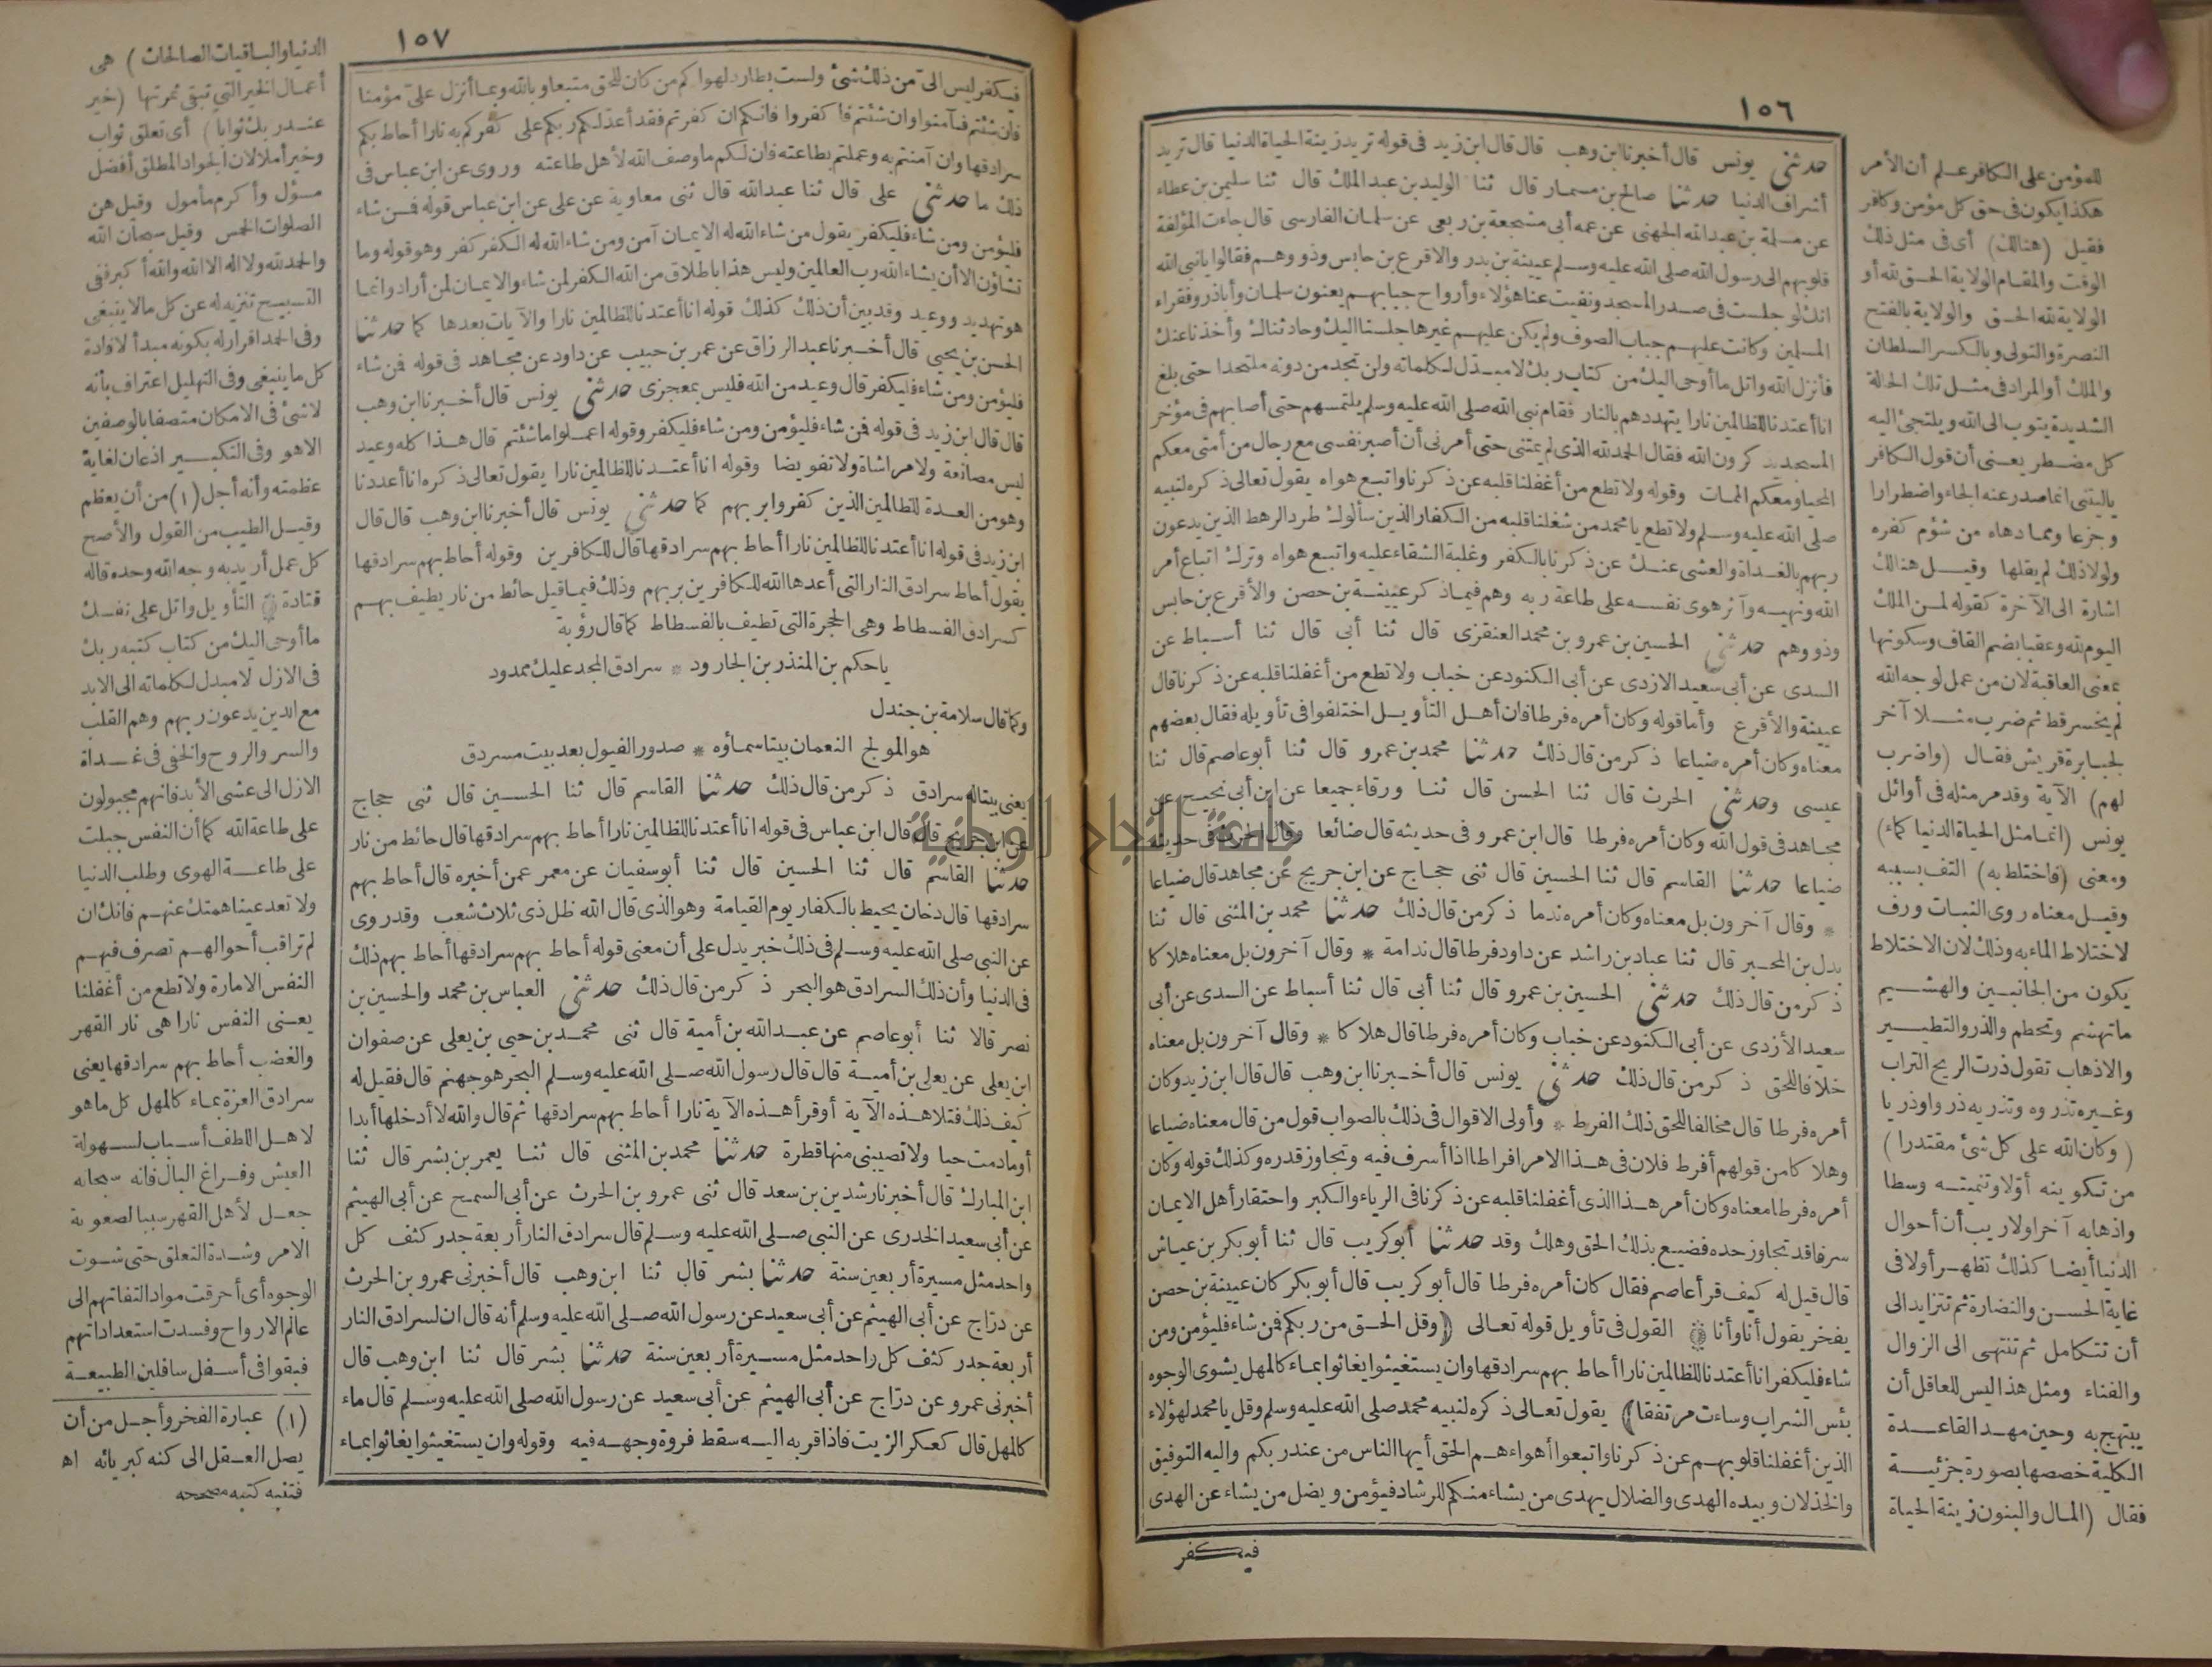 ١٥٦
حدثني يونس قال أخبرنا ابن وهب قال قال ابن زيد في قوله تريد زينة الحياة الدنيا قال تريد
أشراف الدنيا حدثنا صالح بن مسمار قال ثنا الوليد بن عبد الملك قال ثنا سليمن بن عطاء
عن مسلمة بن عبد الله الجهنى عن عمه أبى مشجعة بن ربعى عن سلمان الفارسى قال جاءت المؤلفة
قلوبهم الى رسول الله صلى الله عليه وسلم عيينة بن بدر والاقرع بن حابس وذووهم فقالوا يا نبى الله
انك لو جلست فى صدر المسجد ونفيت عنا هؤلاء وأرواح جبابهم يعنون سلمان وأباذر وفقراء
المسلمين وكانت عليهم جباب الصوف ولم يكن عليهم غيرها جلسنا اليك وحادثناك وأخذنا عنك
فأنزل الله واتل ما أوحى اليك من كتاب ربك لا مبدل لكلماته ولن تجد من دونه ملتحدا حتى بلغ
انا أعتدنا للظالمين نارا يتهددهم بالنار فقام نبى الله صلى الله عليه وسلم يلتمسهم حتى أصابهم فى مؤخر
المسجد يذكرون الله فقال الحمد لله الذى لم يمتنى حتى أمرنى أن أصبر نفسى مع رجال من أمتى معكم
المحيا ومعكم الممات وقوله ولا تطع من أغفلنا قلبه عن ذكرنا واتبع هواه يقول تعالى ذكره لنبيه
صلى الله عليه وسلم ولا تطع يا محمد من شغلنا قلبه من الكفار الذين سألوك طرد الرهط الذين يدعون
ربهم بالغداة والعشى عنك عن ذكرنا بالكفر وغلبة الشقاء عليه واتبع هواه وترك اتباع أمر
الله ونهيه وآثر هوى نفسه على طاعة ربه وهم فيما ذكر عيينة بن حصن والأقرع بن حابس
وذووهم حدثني الحسين بن عمرو بن محمد العنقزى قال ثنا أبى قال ثنا أسباط عن
السدى عن أبى سعيد الازدى عن أبى الكنود عن خباب ولا تطع من أغفلنا قلبه عن ذكرنا قال
عيينة والأقرع وأما قوله وكان أمره فرطا فان أهل التأويل اختلفوا فى تأويله فقال بعضهم
معناه وكان أمره ضياعا ذكر من قال ذلك حدثنا محمد بن عمرو قال ثنا أبو عاصم قال ثنا
عيسى وحدثني الحرث قال ثنا الحسن قال ثنا ورقاء جميعا عن ابن أبى نجيح عن
مجاهد فى قول الله وكان أمره فرطا قال ابن عمرو فى حديثه قال ضائعا وقال الحرث فى حديثه
ضياعا حدثنا القاسم قال ثنا الحسين قال ثنى حجاج عن ابن جريج عن مجاهد قال ضياعا
* وقال آخرون بل معناه وكان أمره ندما ذكر من قال ذلك حدثنا محمد بن المثنى قال ثنا
بدل بن المحبر قال ثنا عباد بن راشد عن داود فرطا قال ندامة * وقال آخرون بل معناه هلاكا
ذكر من قال ذلك حدثني الحسين بن عمرو قال ثنا أبى قال ثنا أسباط عن السدى عن أبى
سعيد الأزدى عن أبى الكنود عن خباب وكان أمره فرطا قال هلاكا * وقال آخرون بل معناه
خلافا للحق ذكر من قال ذلك حدثني يونس قال أخبرنا ابن وهب قال قال ابن زيد وكان
أمره فرطا قال مخالفا للحق ذلك الفرط * وأولى الاقوال فى ذلك بالصواب قول من قال معناه ضياعا
وهلاكا من قولهم أفرط فلان فى هذا الامر افراطا اذا أسرف فيه وتجاوز قدره وكذلك قوله وكان
أمره فرطا معناه وكان أمر هذا الذى أغفلنا قلبه عن ذكرنا فى الرياء والكبر واحتقار أهل الايمان
سرفا قد تجاوز حده فضيع بذلك الحق وهلك وقد حدثنا أبو كريب قال ثنا أبو بكر بن عياش
قال قيل له كيف قرأ عاصم فقال كان أمره فرطا قال أبو كريب قال أبو بكر كان عيينة بن حصن
يفخر يقول أنا وأنا القول فى تأويل قوله تعالى (وقل الحق من ربكم فمن شاء فليؤمن ومن
شاء فليكفر انا أعتدنا للظالمين نارا أحاط بهم سرادقها وان يستغيثوا يغاثوا بماء كالمهل يشوى الوجوه
بئس الشراب وساءت مرتفقا) يقول تعالى ذكره لنبيه محمد صلى الله عليه وسلم وقل يا محمد لهؤلاء
الذين أغفلنا قلوبهم عن ذكرنا واتبعوا أهواءهم الحق أيها الناس من عند ربكم واليه التوفيق
والخذلان وبيده الهدى والضلال يهدى من يشاء منكم للرشاد فيؤمن ويضل من يشاء عن الهدى
فيكفر
للمؤمن على الكافر علم أن الأمر
هكذا يكون فى حق كل مؤمن وكافر
فقيل (هنالك) أى فى مثل ذلك
الوقت والمقام الولاية الحق لله أو
الولاية لله الحق والولاية بالفتح
النصرة والتولى وبالكسر السلطان
والملك أو المراد فى مثل تلك الحالة
الشديدة يتوب الى الله ويلتجئ اليه
كل مضطر يعنى أن قول الكافر
ياليتنى انما صدر عنه الجاء واضطرارا
وجزعا ومما دهاه من شؤم كفره
ولولا ذلك لم يقلها وقيل هنالك
اشارة الى الآخرة كقوله لمن الملك
اليوم لله وعقبا بضم القاف وسكونها
بمعنى العاقبة لان من عمل لوجه الله
لم يخسر قط ثم ضرب مثلا آخر
لجبابرة قريش فقال (واضرب
لهم) الآية وقد مر مثله فى أوائل
يونس (انما مثل الحياة الدنيا كماء)
ومعنى (فاختلط به) التف بسببه
وقيل معناه روى النبات ورف
لاختلاط الماء به وذلك لان الاختلاط
يكون من الجانبين والهشيم
ما تهشم وتحطم والذرو التطيير
والاذهاب تقول ذرت الريح التراب
وغيره تذروه وتذريه ذروا وذريا
(وكان الله على كل شئ مقتدرا)
من تكوينه أولا وتنميته وسطا
واذهابه آخرا ولا ريب أن أحوال
الدنيا أيضا كذلك تظهر أولا فى
غاية الحسن والنضارة ثم تتزايد الى
أن تتكامل ثم تنتهى الى الزوال
والفناء ومثل هذا ليس للعاقل أن
يبتهج به وحين مهد القاعدة
الكلية خصصها بصورة جزئية
فقال (المال والبنون زينة الحياة
١٥٧
فيكفر ليس الى من ذلك شئ ولست بطارد لهواكم من كان للحق متبعا وبالله وبما أنزل على مؤمنا
فان شئتم فآمنوا وان شئتم فاكفروا فانكم ان كفرتم فقد أعد لكم ربكم على كفركم به نارا أحاط بكم
سرادقها وان آمنتم به وعملتم بطاعته فان لكم ما وصف الله لأهل طاعته وروى عن ابن عباس فى
ذلك ما حدثني على قال ثنا عبد الله قال ثنى معاوية عن على عن ابن عباس قوله فمن شاء
فليؤمن ومن شاء فليكفر يقول من شاء الله له الايمان آمن ومن شاء الله له الكفر كفر وهو قوله وما
تشاؤن الا أن يشاء الله رب العالمين وليس هذا باطلاق من الله الكفر لمن شاء والايمان لمن أراد وانما
هو تهديد ووعيد وقد بين أن ذلك كذلك قوله انا أعتدنا للظالمين نارا والآيات بعدها كما حدثنا
الحسن بن يحيى قال أخبرنا عبد الرزاق عن عمر بن حبيب عن داود عن مجاهد فى قوله فمن شاء
فليؤمن ومن شاء فليكفر قال وعيد من الله فليس بمعجزى حدثني يونس قال أخبرنا ابن وهب
قال قال ابن زيد فى قوله فمن شاء فليؤمن ومن شاء فليكفر وقوله اعملوا ما شئتم قال هذا كله وعيد
ليس مصانعة ولا مراشاة ولا تفويضا وقوله انا أعتدنا للظالمين نارا يقول تعالى ذكره انا أعددنا
وهو من العدة للظالمين الذين كفروا بربهم كما حدثني يونس قال أخبرنا ابن وهب قال قال
ابن زيد فى قوله انا أعتدنا للظالمين نارا أحاط بهم سرادقها قال للكافرين وقوله أحاط بهم سرادقها
يقول أحاط سرادق النار التى أعدها الله للكافرين بربهم وذلك فيما قيل حائط من نار يطيف بهم
كسرادق الفسطاط وهى الحجرة التى تطيف بالفسطاط كما قال رؤبة
يا حكم بن المنذر بن الجارود * سرادق المجد عليك ممدود
وكما قال سلامة بن جندل
هو المولج النعمان بيتا سماؤه * صدور الفيول بعد بيت مسردق
يعنى بيتا له سرادق ذكر من قال ذلك حدثنا القاسم قال ثنا الحسين قال ثنى حجاج
عن ابن جريج قال قال ابن عباس فى قوله انا أعتدنا للظالمين نارا أحاط بهم سرادقها قال حائط من نار
حدثنا القاسم قال ثنا الحسين قال ثنا أبو سفيان عن معمر عمن أخبره قال أحاط بهم
سرادقها قال دخان يحيط بالكفار يوم القيامة وهو الذى قال الله ظل ذى ثلاث شعب وقد روى
عن النبى صلى الله عليه وسلم فى ذلك خبر يدل على أن معنى قوله أحاط بهم سرادقها أحاط بهم ذلك
فى الدنيا وأن ذلك السرادق هو البحر ذكر من قال ذلك حدثني العباس بن محمد والحسين بن
نصر قالا ثنا أبو عاصم عن عبد الله بن أمية قال ثنى محمد بن حيى بن يعلى عن صفوان
ابن يعلى عن يعلى بن أمية قال قال رسول الله صلى الله عليه وسلم البحر هو جهنم قال فقيل له
كيف ذلك فتلا هذه الآية أو قرأ هذه الآية نارا أحاط بهم سرادقها ثم قال والله لا أدخلها أبدا
أو ما دمت حيا ولا تصيبنى منها قطرة حدثنا محمد بن المثنى قال ثنا يعمر بن بشر قال ثنا
ابن المبارك قال أخبرنا رشدين بن سعد قال ثنى عمرو بن الحرث عن أبى السمح عن أبى الهيثم
عن أبى سعيد الخدرى عن النبى صلى الله عليه وسلم قال سرادق النار أربعة جدر كثف كل
واحد مثل مسيرة أربعين سنة حدثنا بشر قال ثنا ابن وهب قال أخبرنى عمرو بن الحرث
عن دراج عن أبى الهيثم عن أبى سعيد عن رسول الله صلى الله عليه وسلم أنه قال ان لسرادق النار
أربعة جدر كثف كل واحد مثل مسيرة أربعين سنة حدثنا بشر قال ثنا ابن وهب قال
أخبرنى عمرو عن دراج عن أبى الهيثم عن أبى سعيد عن رسول الله صلى الله عليه وسلم قال ماء
كالمهل قال كعكر الزيت فاذا قربه اليه سقط فروة وجهه فيه وقوله وان يستغيثوا يغاثوا بماء
الدنيا والباقيات الصالحات) هى
أعمال الخير التى تبقى ثمرتها (خير
عند ربك ثوابا) أى تعلق ثواب
وخير أملا لان الجواد المطلق أفضل
مسؤل وأكرم مأمول وقيل هن
الصلوات الخمس وقيل سبحان الله
والحمد لله ولا اله الا الله والله أكبر ففى
التسبيح تنزيه له عن كل ما لا ينبغى
وفى الحمد اقرار له بكونه مبدأ لافادة
كل ما ينبغى وفى التهليل اعتراف بأنه
لا شئ فى الامكان متصفا بالوصفين
الا هو وفى التكبير اذعان لغاية
عظمته وأنه أجل (١) من أن يعظم
وقيل الطيب من القول والأصح
كل عمل أريد به وجه الله وحده قاله
قتادة التأويل واتل على نفسك
ما أوحى اليك من كتاب كتبه ربك
فى الازل لا مبدل لكلماته الى الابد
مع الذين يدعون ربهم وهم القلب
والسر والروح والخفى فى غداة
الازل الى عشى الأبد فانهم مجبولون
على طاعة الله كما أن النفس جبلت
على طاعة الهوى وطلب الدنيا
ولا تعد عينا همتك عنهم فانك ان
لم تراقب أحوالهم تصرف فيهم
النفس الامارة ولا تطع من أغفلنا
يعنى النفس نارا هى نار القهر
والغضب أحاط بهم سرادقها يعنى
سرادق العزة بماء كالمهل كل ما هو
لاهل اللطف أسباب لسهولة
العيش وفراغ البال فانه سبحانه
جعل لأهل القهر سببا لصعوبة
الامر وشدة التعلق حتى شوت
الوجوه أى أحرقت مواد التفاتهم الى
عالم الارواح وفسدت استعداداتهم
فبقوا فى أسفل سافلين الطبيعة
(١) عبارة الفخر وأجل من أن
يصل العقل الى كنه كبريائه اه
فتنبه كتبه مصححه
جامعة النجاح الوطنية